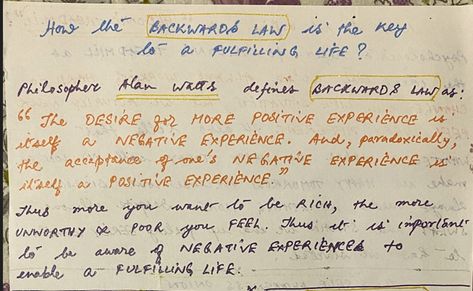 How the BACKWARDS LAW is the key
to a FULFILLING LIFE?
Philosopher Alan Watts defines BACKWARDS LAW as:
"The DESIRE for MORE POSITIVE EXPERIENCE is
itself a NEGATIVE EXPERIENCE. And, paradoxically,
the acceptance of one's NEGATIVE EXPERIENCE is
itself a POSITIVE EXPERIENCE"
Thus more you want to be RICH, the more
UNWORTHY & POOR you FEEL. Thus it is important
to be aware of NEGATIVE EXPERIENCES to
enable a FULFILLING LIFE.